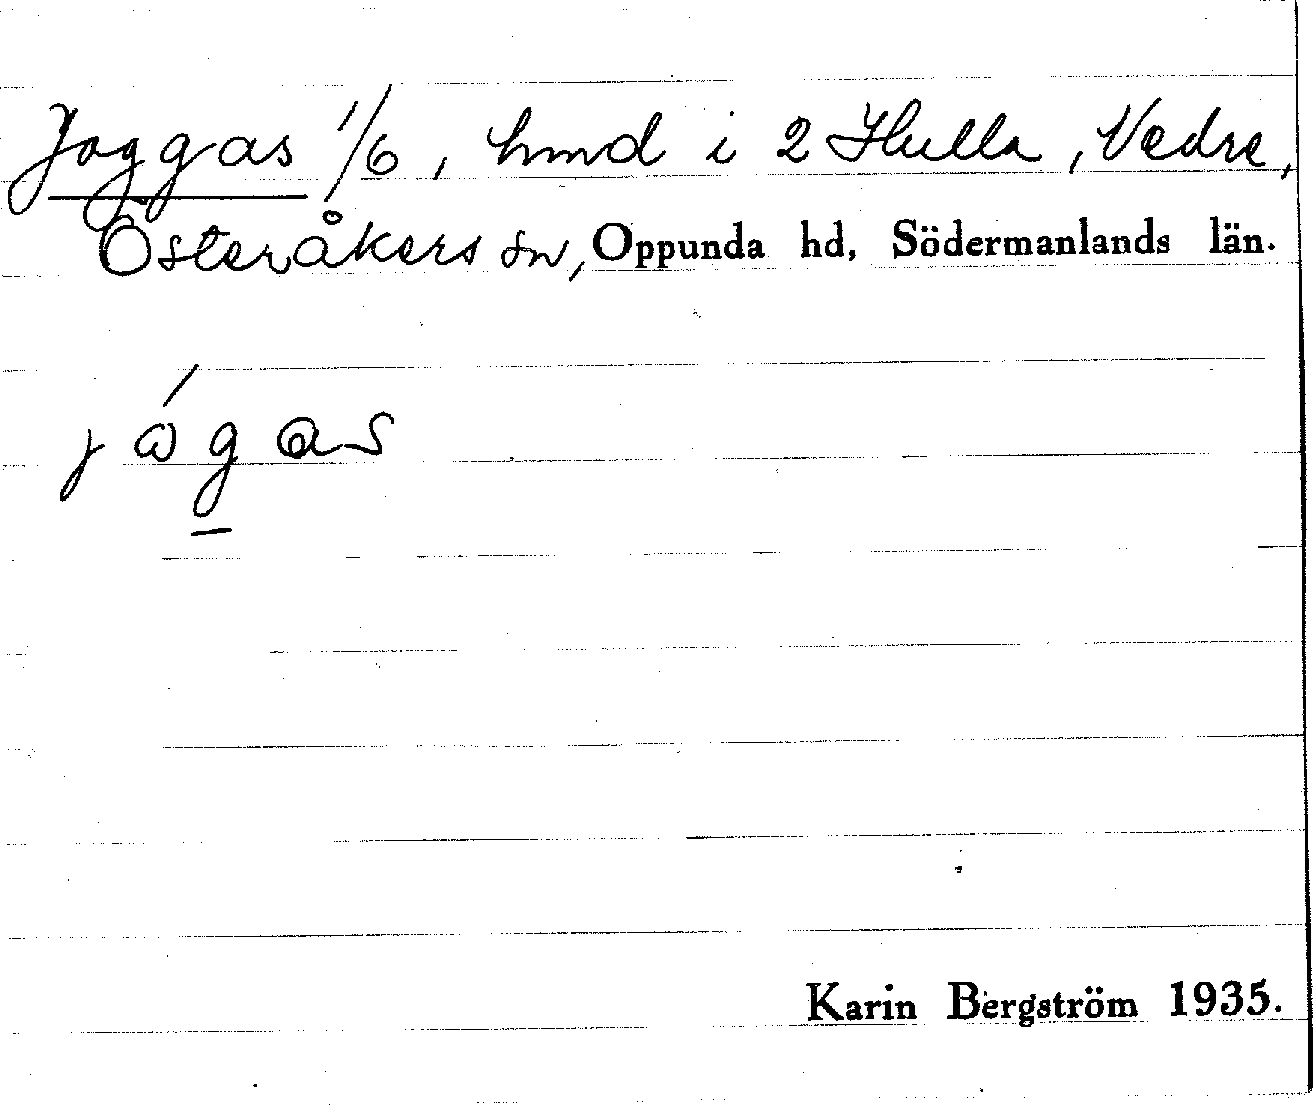 Joggas 1/6, hmd i 2 Hulla, Vedre,
Österåkers sn, Oppunda hd, Södermanlands län.
jógas
Karin Bergström 1935.